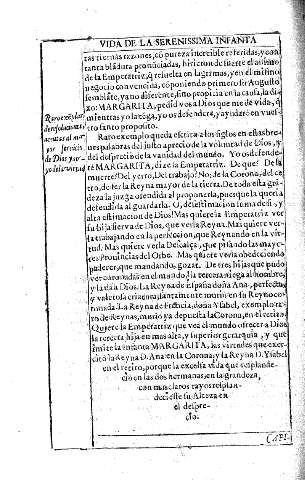 VIDA DE LA SERENISSIMA INFANTA
tas tiernas razones, cõ pureza increible referidas, y con
tanta blãdura pronũciadas, hirieron de suerte el animo
de la Emperatriz, q̃ resuelta en lagrimas, y en el mismo
negocio convencida, cõponiendo primero su Augusto
semblãte, ya no diferente, sino propicia en la causa, la di-
xo: MARGARITA, pedid vos a Dios que me dè vida, q̃
mientras yo la tẽga, yo os defenderè, y ayudarè en vues-
tro santo proposito.
Raro exemplar
de resoluciones
por servicio
de Dios
Raro exemplo queda escrito a los siglos en estas bre-
ves palabras del justo aprecio de la voluntad de Dios, y
del desprecio de la vanidad del mundo. Yo os defende-
rè MARGARITA, dize la Emperatriz. De que? De la
muerte? Del yerro? Del trabajo? No; de la Corona, del ce-
tro, de ser la Reyna mayor de la tierra. De toda esta grã-
deza la juzga ofendida al proponerla, pues que la queria
defendida al guardarla. O, desestimacion toma de si, y
alta estimacion de Dios! Mas queria la Emperatriz ver
su hija sierva de Dios, que verla Reyna. Mas quiere ver-
la trabajando en la perfeccion, que Reynando en la vir-
tud. Mas quiere verla Descalça, que pisando las mayo-
res Provincias del Orbe. Mas quiere verla obedeciendo,
padecer, que mandando, gozar. De tres hijas que pudo
ver coronadas en el mundo, la tercera niega al hombre,
y la dà a Dios. La Reyna de España doña Ana, perfecta,
y valerosa criatura, santamente murio en su Reyno co-
ronada. La Reyna de Francia, doña Ysabel, exemplo ra-
ro de Reynas, murio ya depuesta la Corona, en el retiro.
Quiere la Emperatriz que vea el mundo ofrecer a Dios
la tercera hija en mas alta, y superior gerarquia, y que
imite la infanta MARGARITA, las virtudes que exer-
citò la Reyna D. Ana en la Corona, y la Reyna D. Ysabel
en el retiro, porque la excelsa vida que resplande-
ciò en las dos hermanas, en la grandeza,
con mas claros rayos resplan-
deciesse su Alteza en
el despre-
cio.
CAPI-